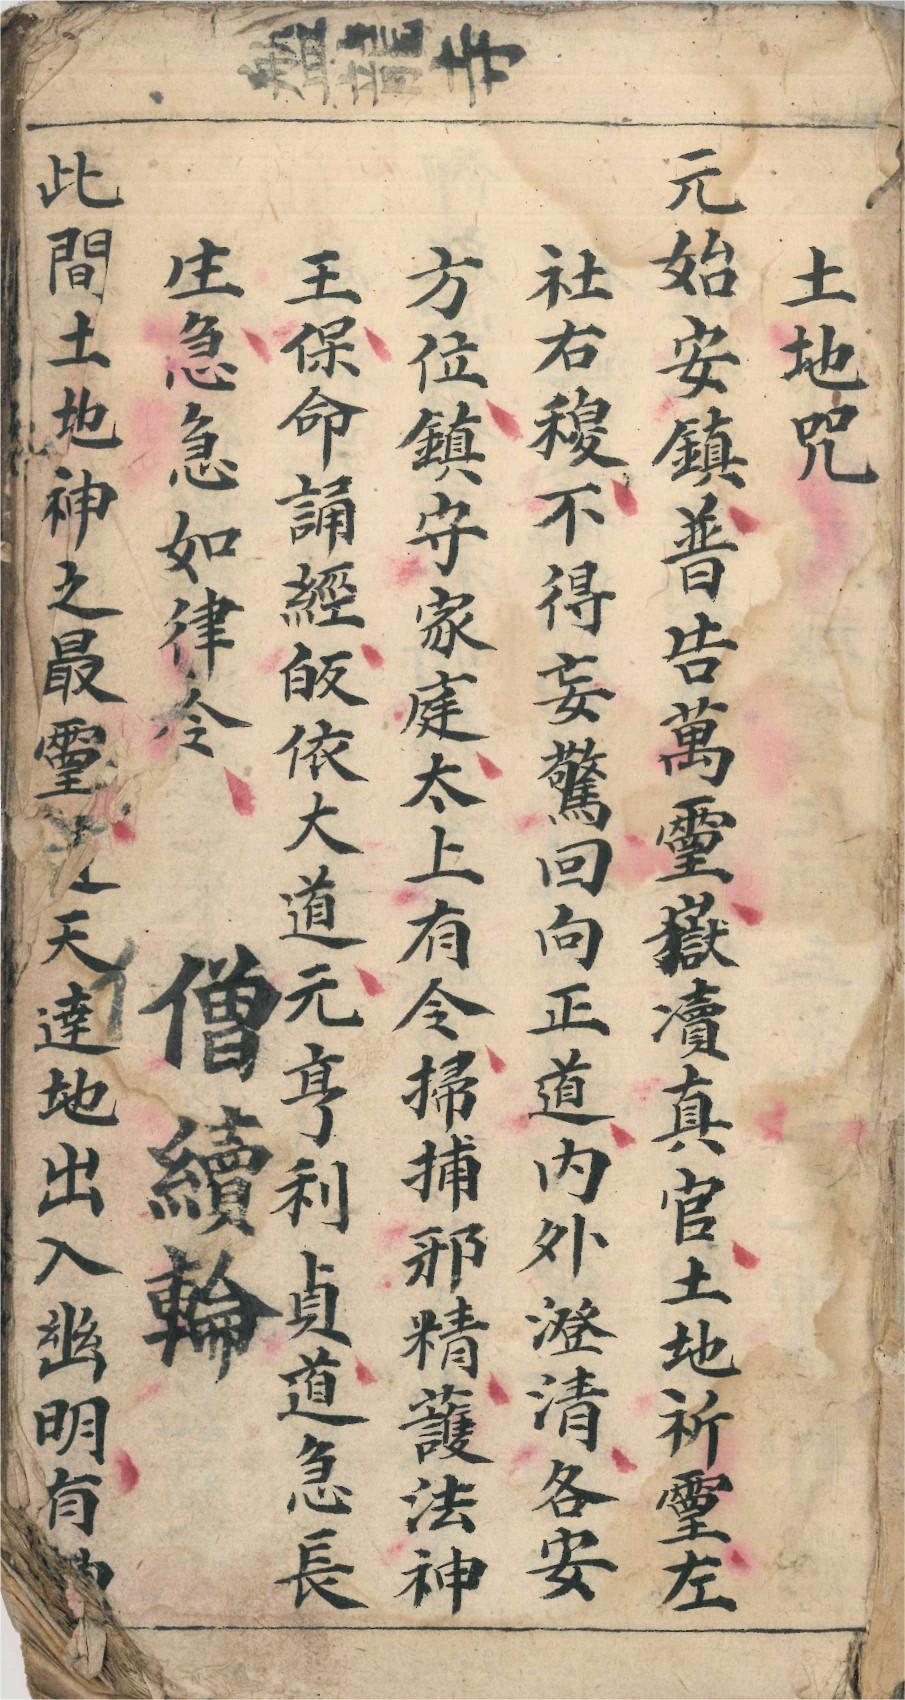 土地咒
元始安鎮普告萬霊嶽瀆真官土地祈霊左
社右稷不得妄驚回向正道内外澄清各安
方位鎮守家庭太上有令掃捕邪精護法神
王保命誦經皈依大道元亨利貞道急長
庄急急如律令
僧續輪
此間土地神之最霊天達地出入幽明有